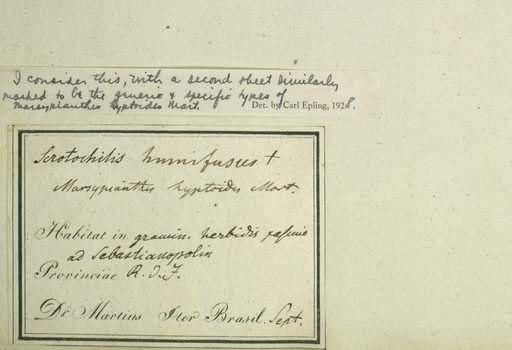 I consider this, with a second sheet similarly
marked to be the generic & specific types of
Marsypianthes hyptoides Mart. Det. by Carl Epling, 1928.
humifusus +
Marsypianthes hyptoides Mart.
Habitat in gramin. herbidis
ad Sebastianopolin
Provinciae R. J.
Dr Martius Iter Brasil. Sept.